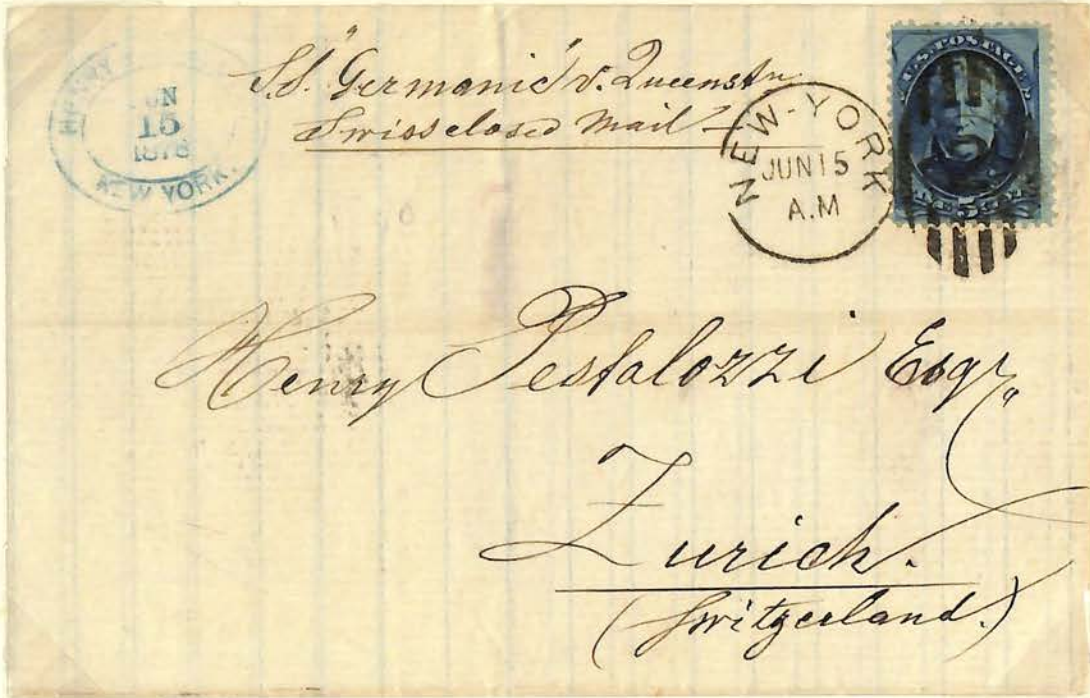 HENRY
JUN
15
1878
NEW YORK.
S.S. "Germanic" v. Queenstn
Swiss closed Mail
NEW-YORK
JUN 15
A.M
U.S. POSTAGE
5
Henry Pestalozzi Esqr,,
Zurich.
(Switzerland.)